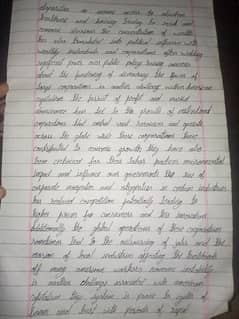 disparities in income access to education
healthcare and housing leading to social and
economic divisions the concentration of wealth
has also translated into political influence with
wealthy individuals and corporations often wielding
significant power over public policy raising concerns
about the functioning of democracy the power of
large corporations is another challenge within American
capitalism the pursuit of profit and market
dominance has led to the growth of multinational
corporations that control vast resources and operate
across the globe while these corporations have
contributed to economic growth they have also
been criticized for their labor practices environmental
impact and influence over governments the rise of
corporate monopolies and oligopolies in certain industries
has reduced competition potentially leading to
higher prices for consumers and less innovation
additionally the global operations of these corporations
sometimes lead to the outsourcing of jobs and the
erosion of local industries affecting the livelihoods
of many american workers economic instability
is another challenge associated with american
capitalism the system is prone to cycles of
boom and bust with periods of rapid